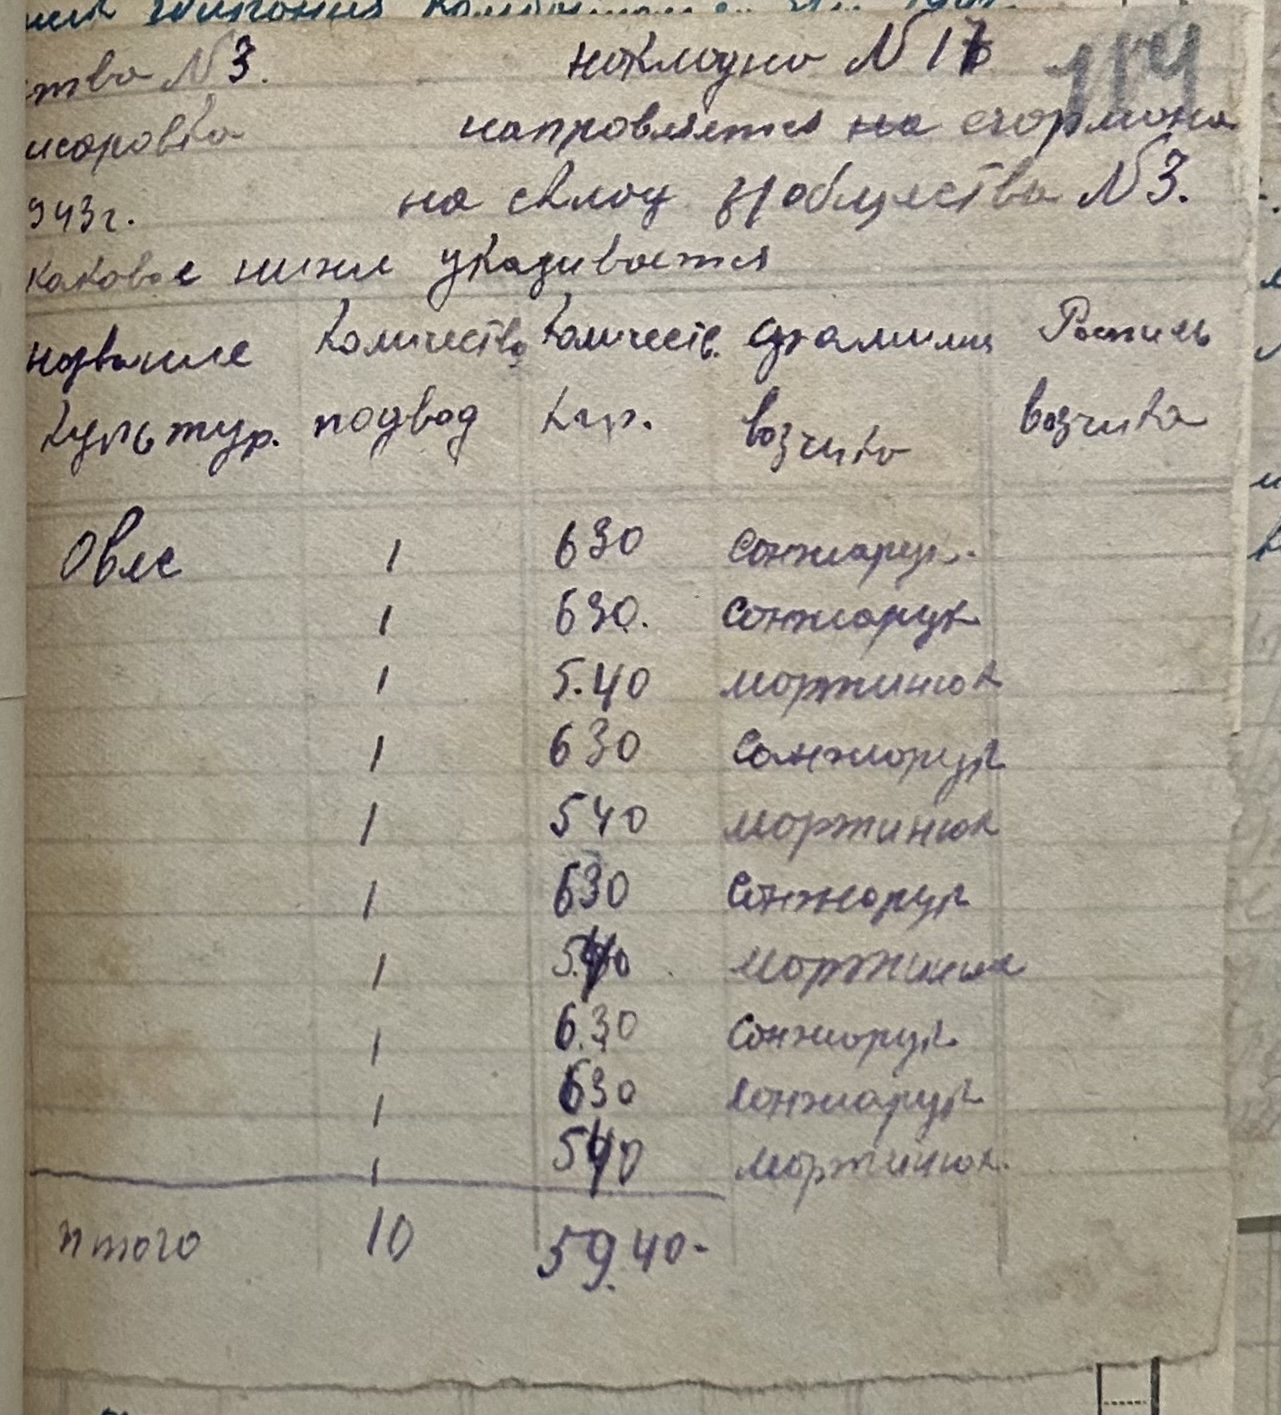 тва №3. накладна №17
114
направляется на
943г. на склад общества №3.
каковое ниже указивается
название Количество Количеств. фамилия Роспись
Культур. подвод кгр. возчика возчика
Овес 1 630 Сонжарук.
1 630. Сонжарук
1 5.40 мортинюк
1 630 Сонжарук
1 540 мортинюк
1 630 Сонжарук
1 5.40 мортинюк
1 6.30 Сонжарук
1 630 Сонжарук
1 540 мортинюк.
итого 10 59.40-